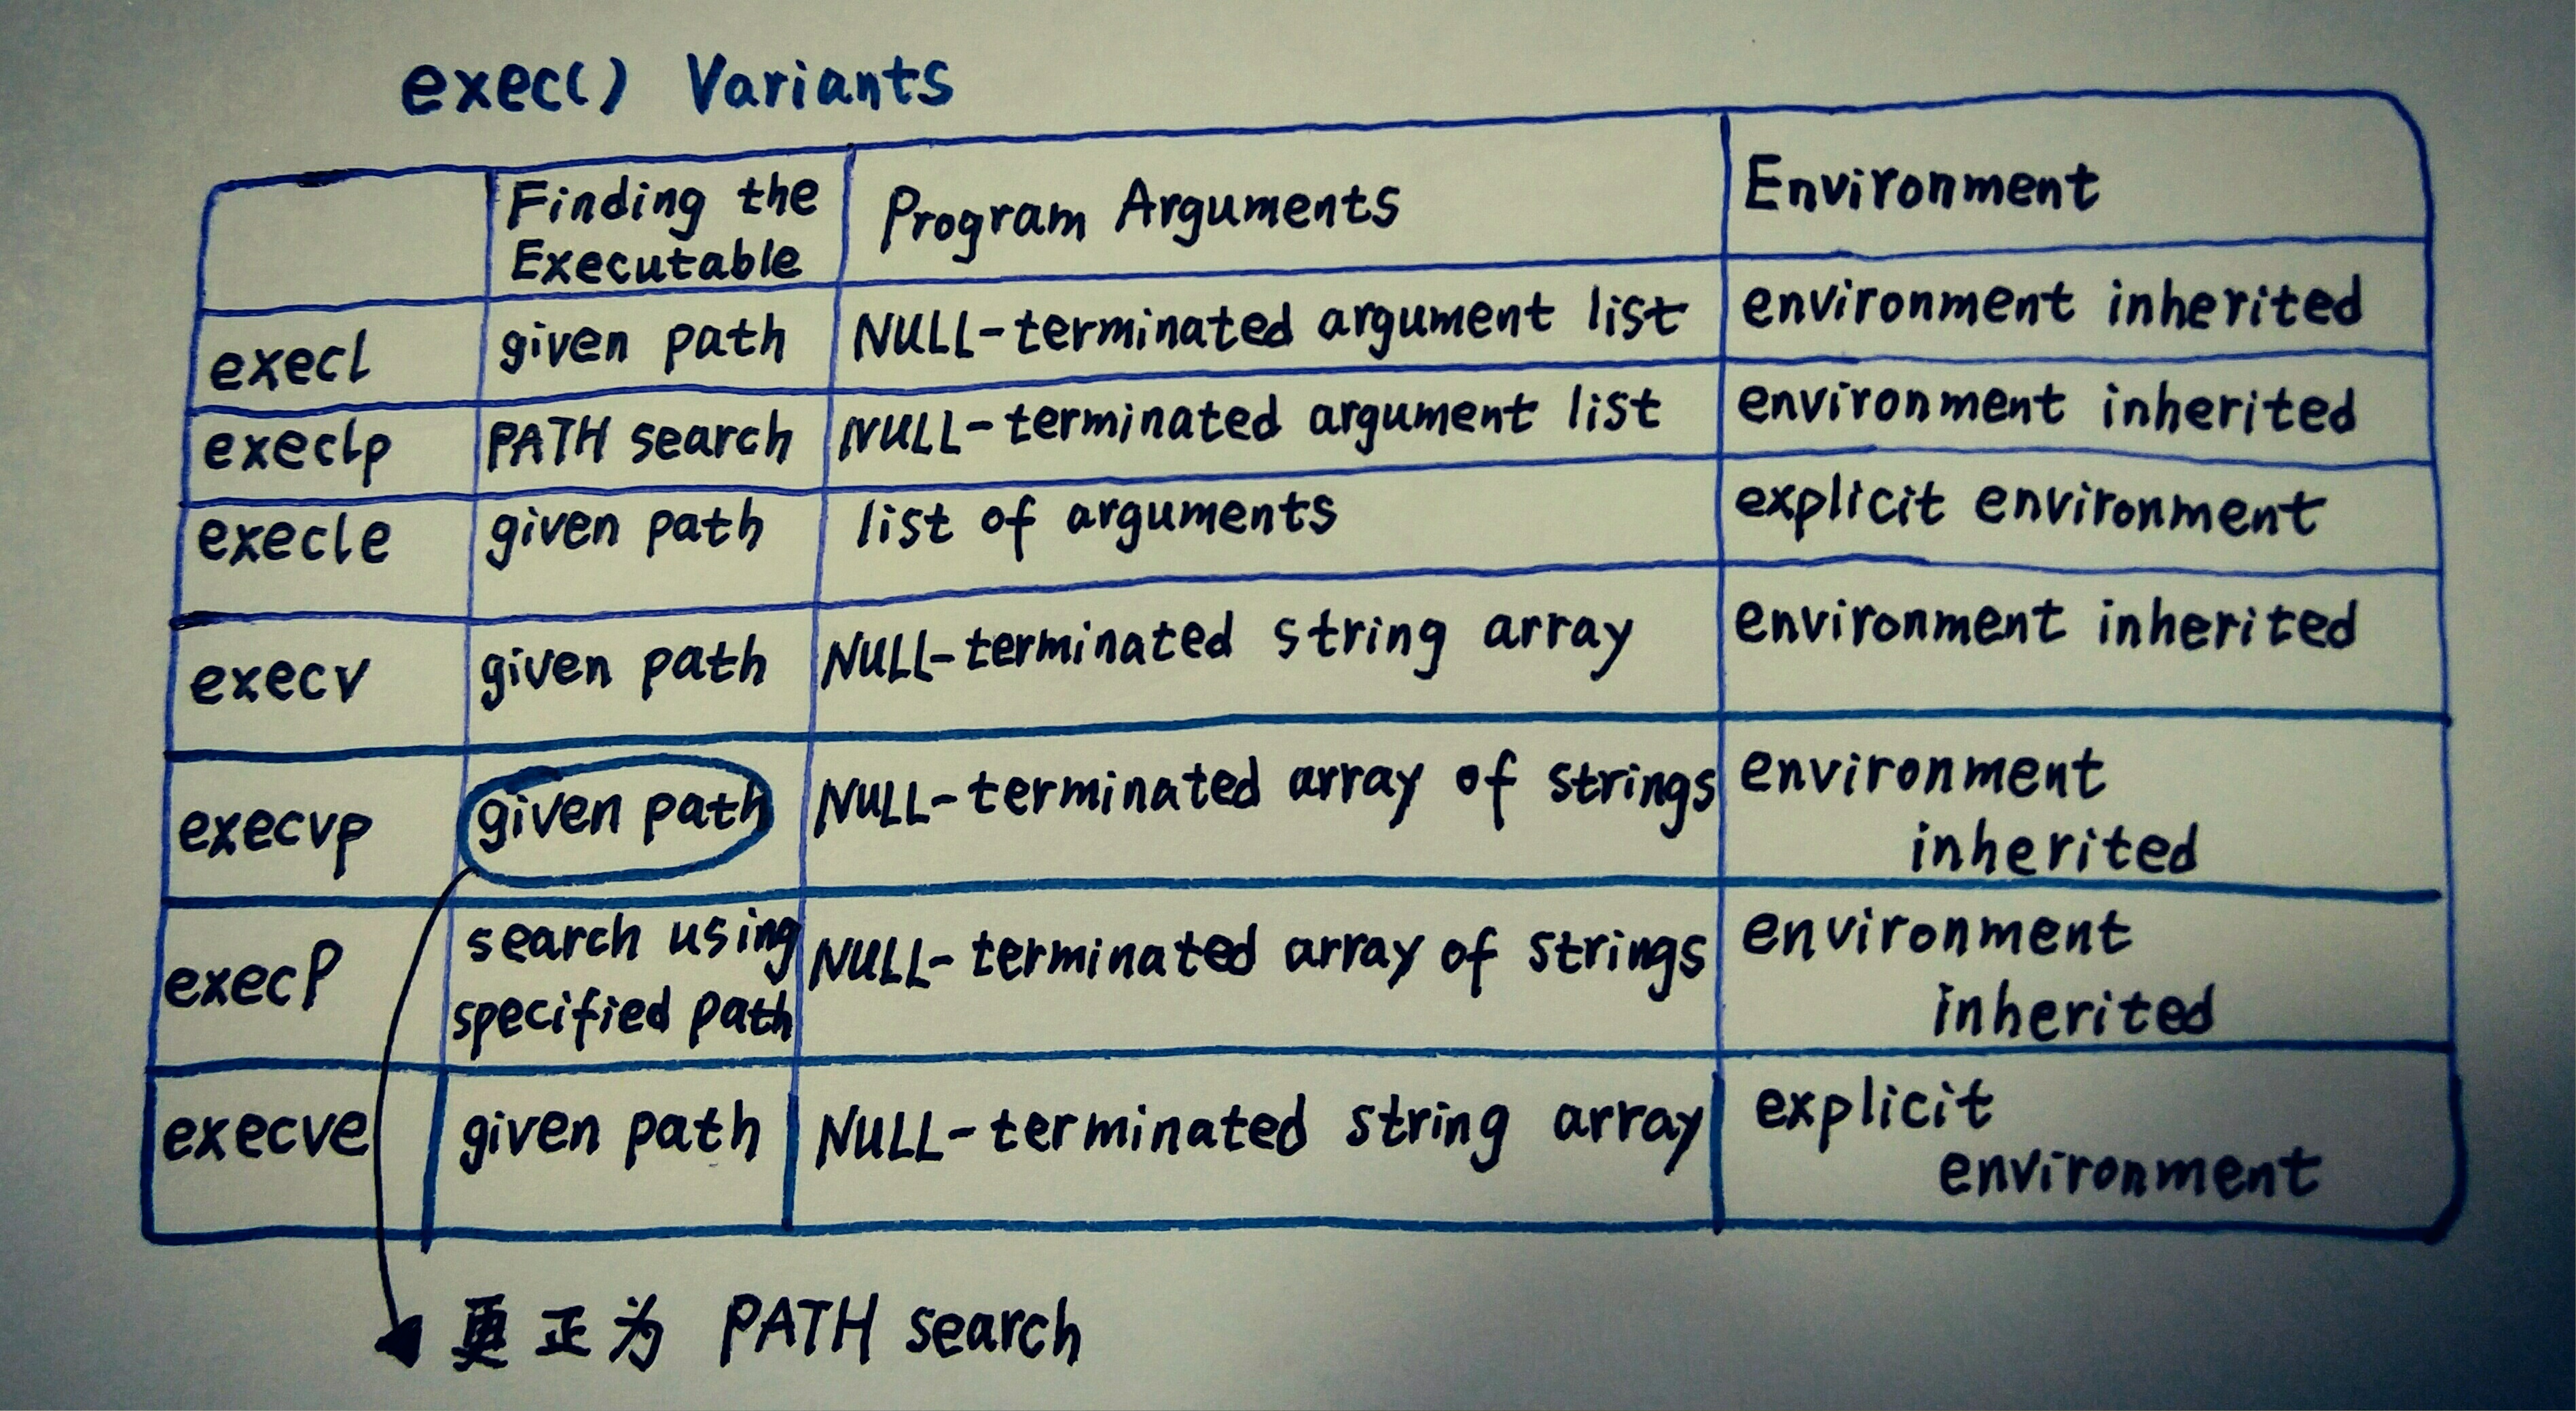 exec() Variants
Finding the
Executable
Program Arguments
Environment
execl
given path
NULL-terminated argument list
environment inherited
execlp
PATH search
NULL-terminated argument list
environment inherited
execle
given path
list of arguments
explicit environment
execv
given path
NULL-terminated string array
environment inherited
execvp
given path
NULL-terminated array of strings
environment
inherited
execP
search using
specified path
NULL-terminated array of strings
environment
inherited
execve
given path
NULL-terminated string array
explicit
environment
更正为 PATH search